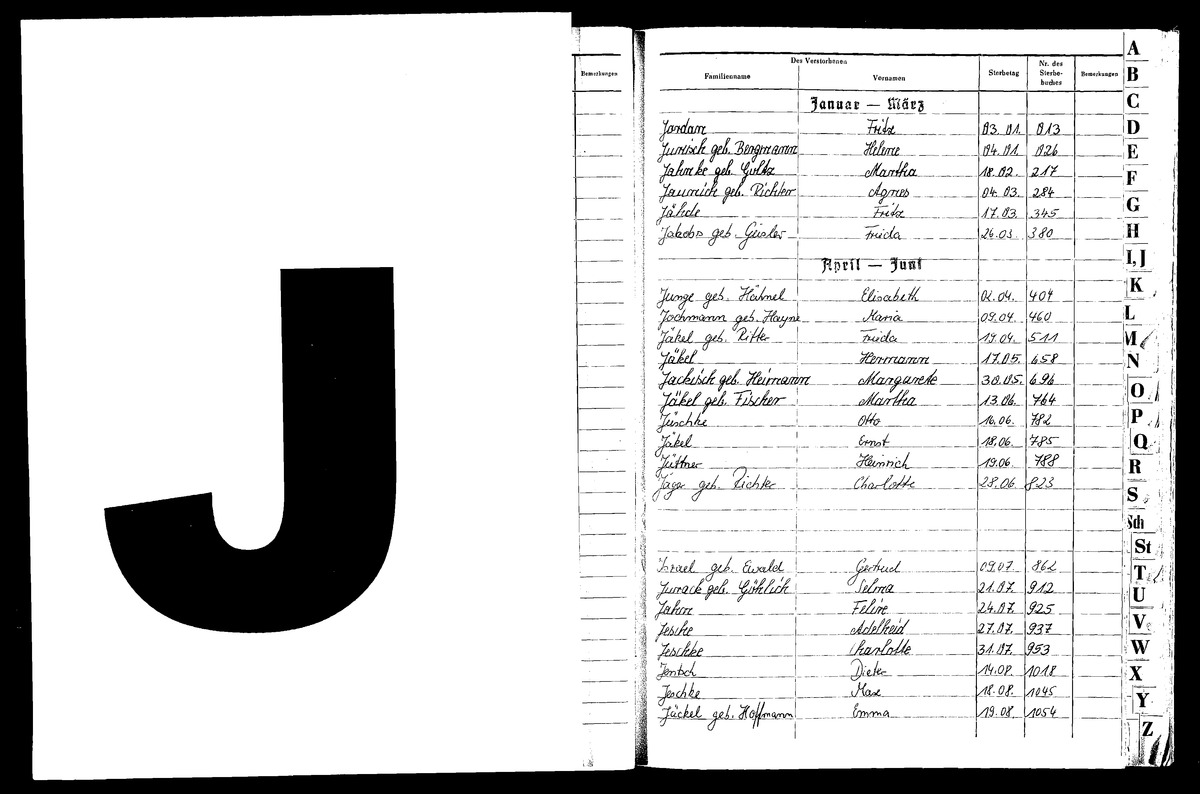 J
Bemerkungen
Des Verstorbenen
Familienname Vornamen Sterbetag Nr. des Sterbe-buches Bemerkungen
Januar — März
Jordan Fritz 03.01. 013
Junisch geb. Bergmann Helene 04.01. 026
Jahnke geb. Martha 18.02. 217
Jaunich geb. Richter Agnes 04.03. 284
Jähde Fritz 17.03. 345
Jakobs geb. Frieda 26.03. 380
April — Juni
Junge geb. Hähnel Elisabeth 02.04. 404
Jochmann geb. Hayne Maria 09.04. 460
Jäkel geb. Ritter Frieda 19.04. 511
Jäkel Hermann 17.05. 658
Jackisch geb. Heimann Margarete 30.05. 696
Jäkel geb. Fischer Martha 13.06. 764
Jüschke Otto 16.06. 782
Jäkel Ernst 18.06. 785
Jüttner Heinrich 19.06. 788
Jäger geb. Richter Charlotte 28.06 823
Israel geb. Ewald Gertrud 09.07. 862
Jurack geb. Göhlich Selma 21.07. 912
Jahn 24.07. 925
Jeschke Adelheid 27.07. 937
Jeschke Charlotte 31.07. 953
Jentsch Dieter 14.08. 1018
Jeschke Max 18.08. 1045
Jäckel geb. Hoffmann Emma 19.08. 1054
A
B
C
D
E
F
G
H
I, J
K
L
M
N
O
P
Q
R
S
Sch
St
T
U
V
W
X
Y
Z